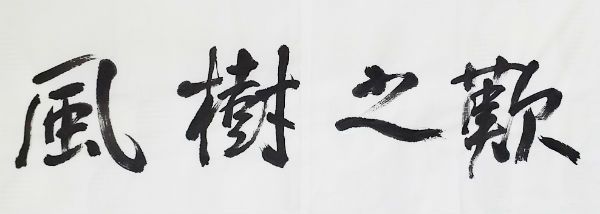 風樹之歎